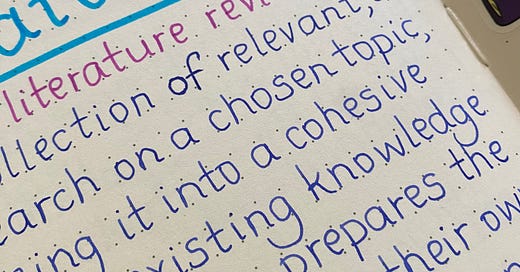 literature revi
llection of relevant,
earch on a chosen topic,
ing it into a cohesive
xisting knowledge
prepares the
their own